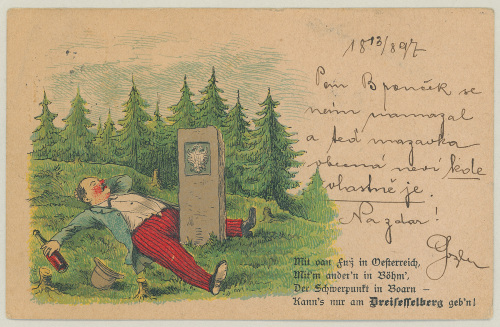 18 13/8 97
se
namazal
a teď mazavka
obecná neví kde
vlastně je.
Na zdar!
Mit oan Fuß in Oesterreich,
Mit'm ander'n in Böhm',
Der Schwerpunkt in Boarn —
Kann's nur am Dreisesselberg geb'n!